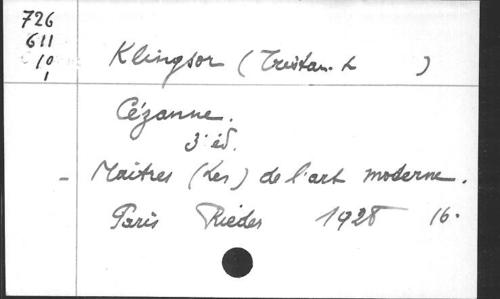 726
611
10
1
Klingsor (Tristan. L )
Cézanne.
3ᵉ éd.
- Maitres (Les) de l'art moderne.
Paris Rieder 1928 16.